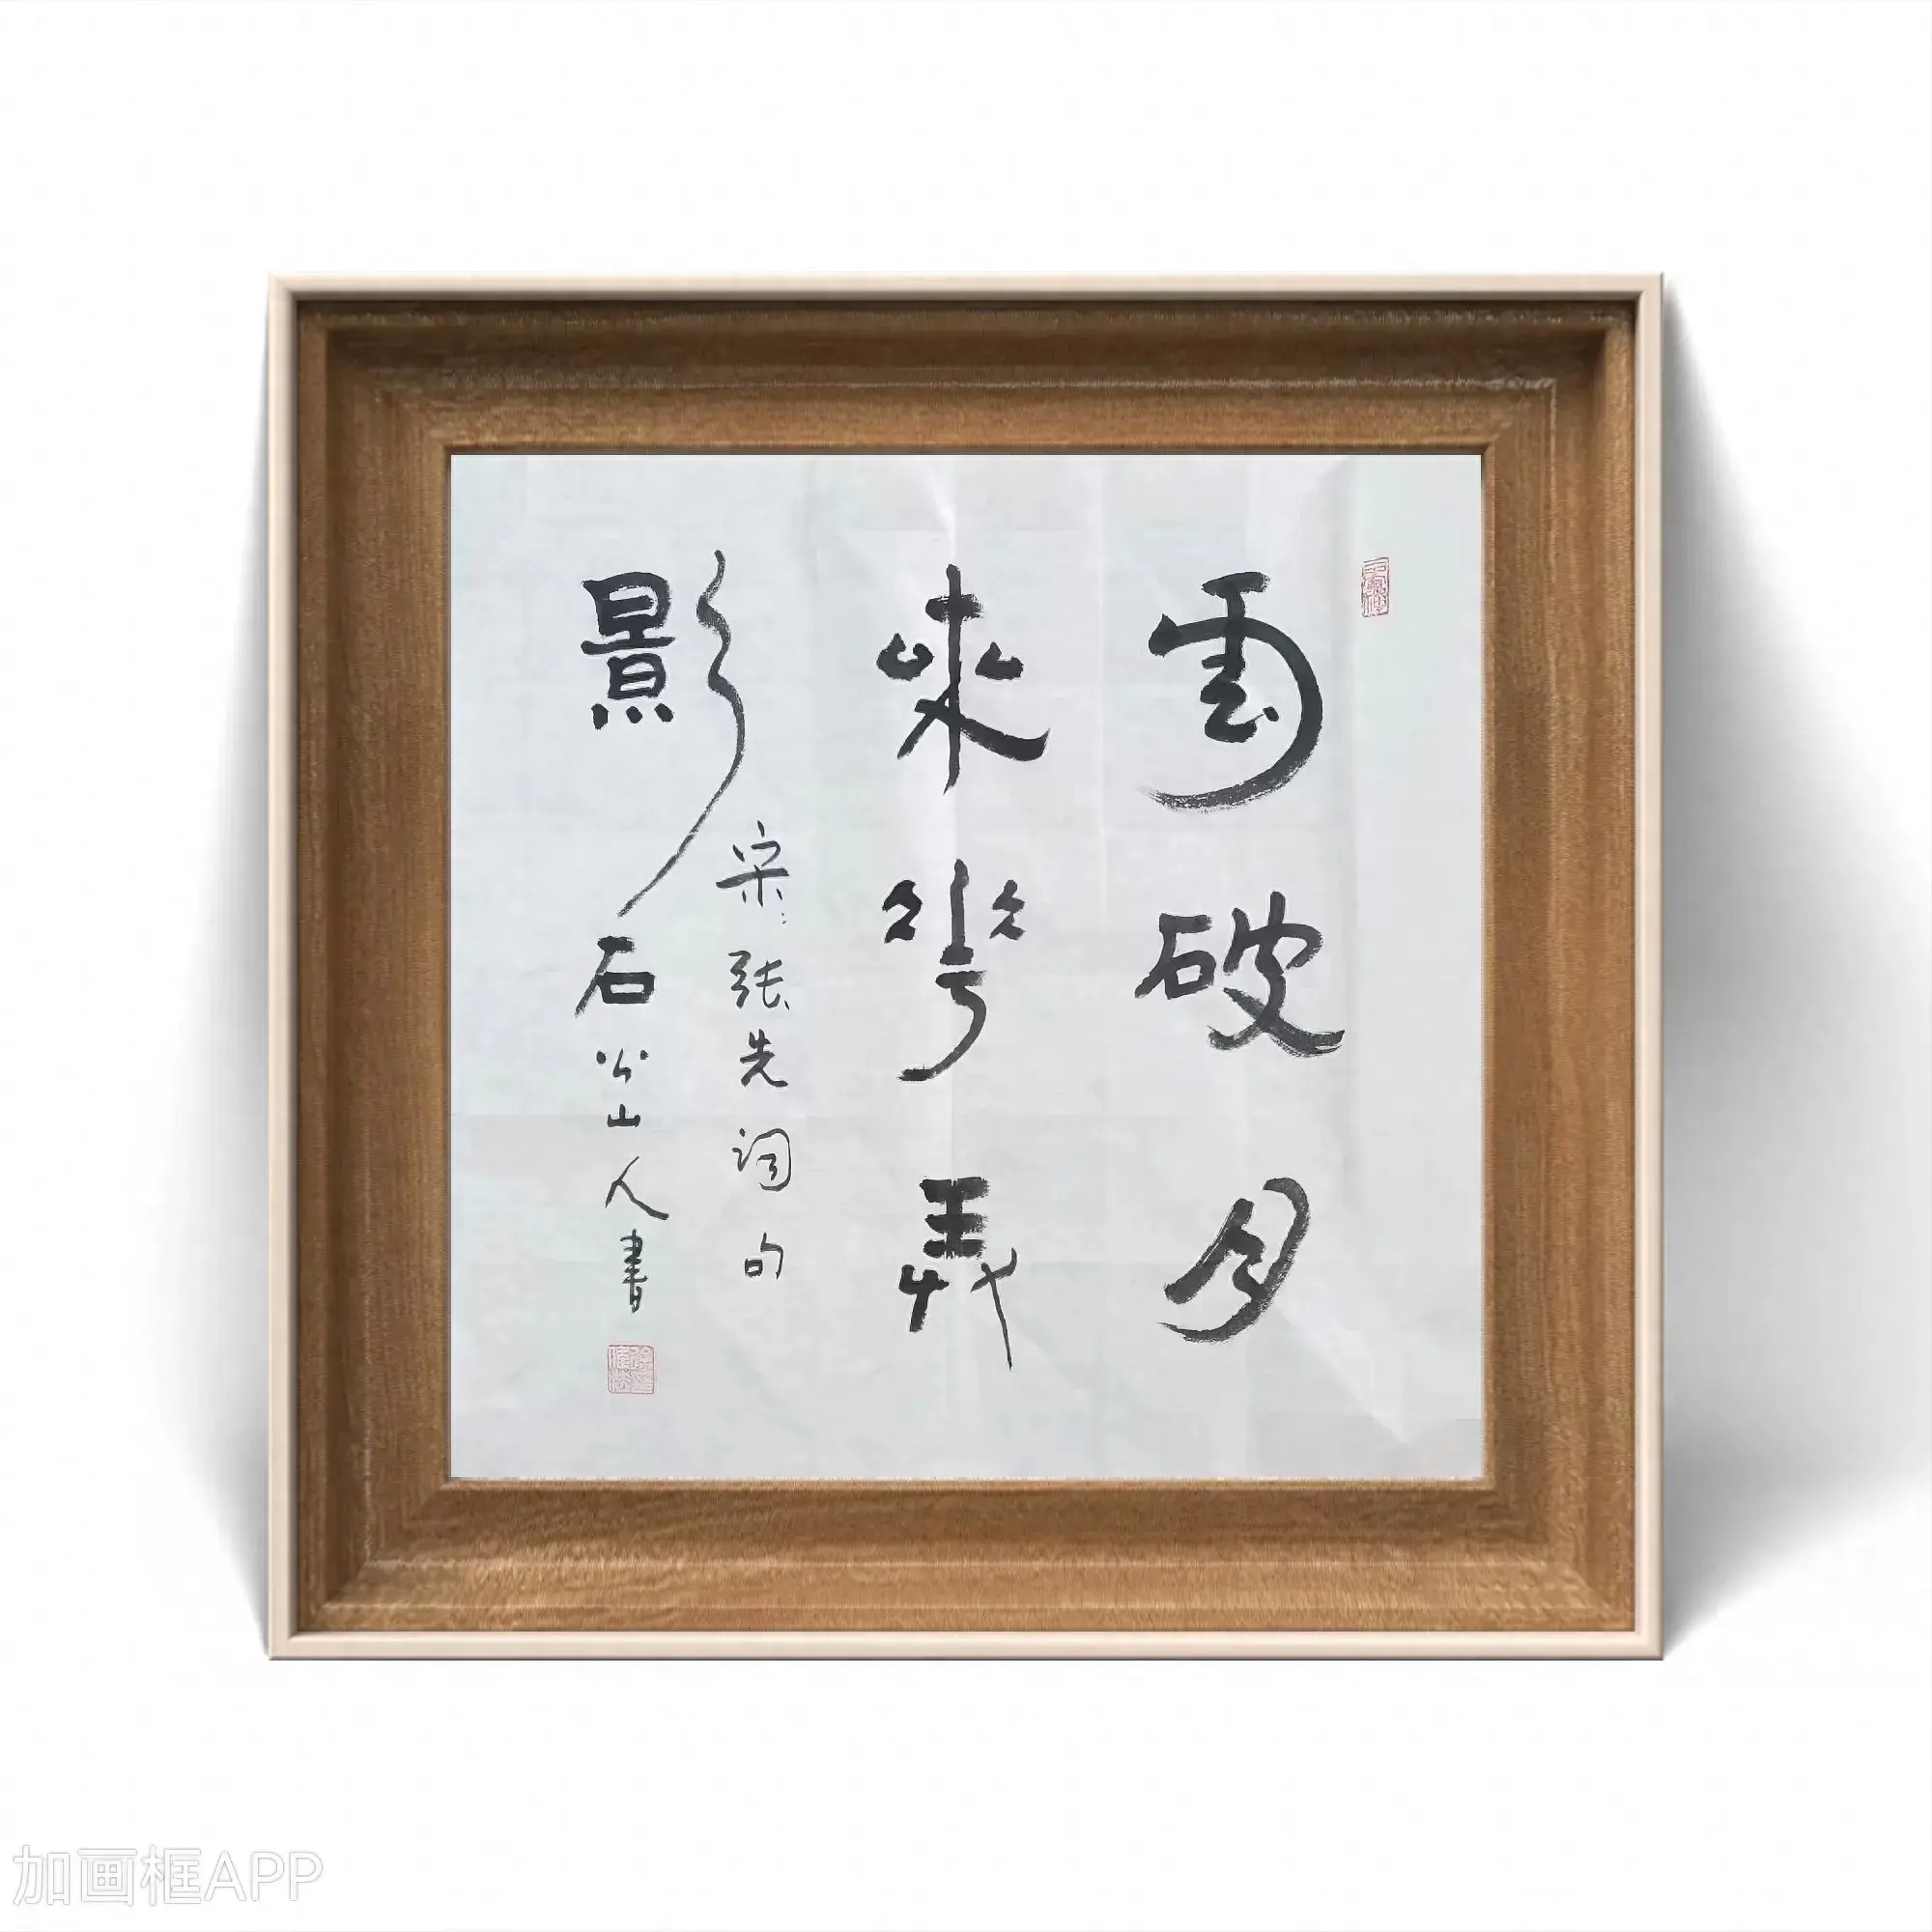 雲破月
來花弄
影
宋：张先词句
石公山人書
加画框APP